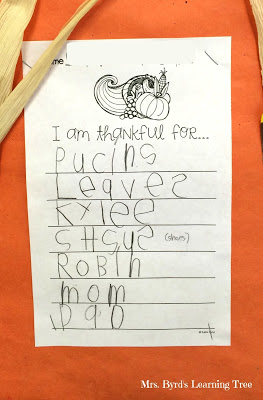 me
I am thankful for...
Pucins
Leaves
Kylee
sHsus (shoes)
RoBin
mom
DaD
Mrs. Byrd's Learning Tree